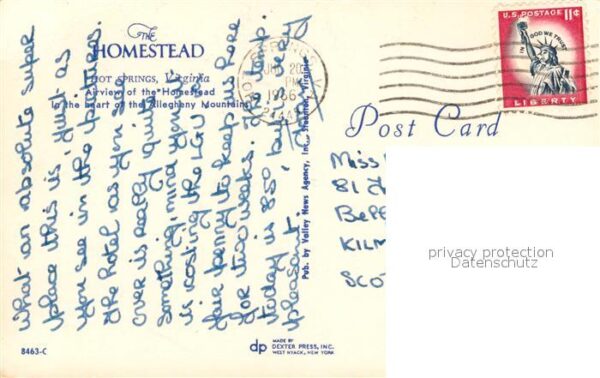 THE
HOMESTEAD
HOT SPRINGS, Virginia
Airview of the Homestead
In the heart of the Allegheny Mountains
What an absolute super
place this is, just as
you see in the pictures.
The hotel as you see
over is really quite
something, mind you it
is costing the LGU a
fair penny to keep us here
for two weeks. The temp.
today is 85° but very
pleasant.
Pub. by Valley News Agency, Inc., Staunton, Virginia
HOT SPRINGS
JUN 28
PM
1966
U.S. POSTAGE 11¢
IN GOD WE TRUST
LIBERTY
Post Card
Miss
81
KILM
SCO
privacy protection
Datenschutz
8463-C
dp
MADE BY
DEXTER PRESS, INC.
WEST NYACK, NEW YORK